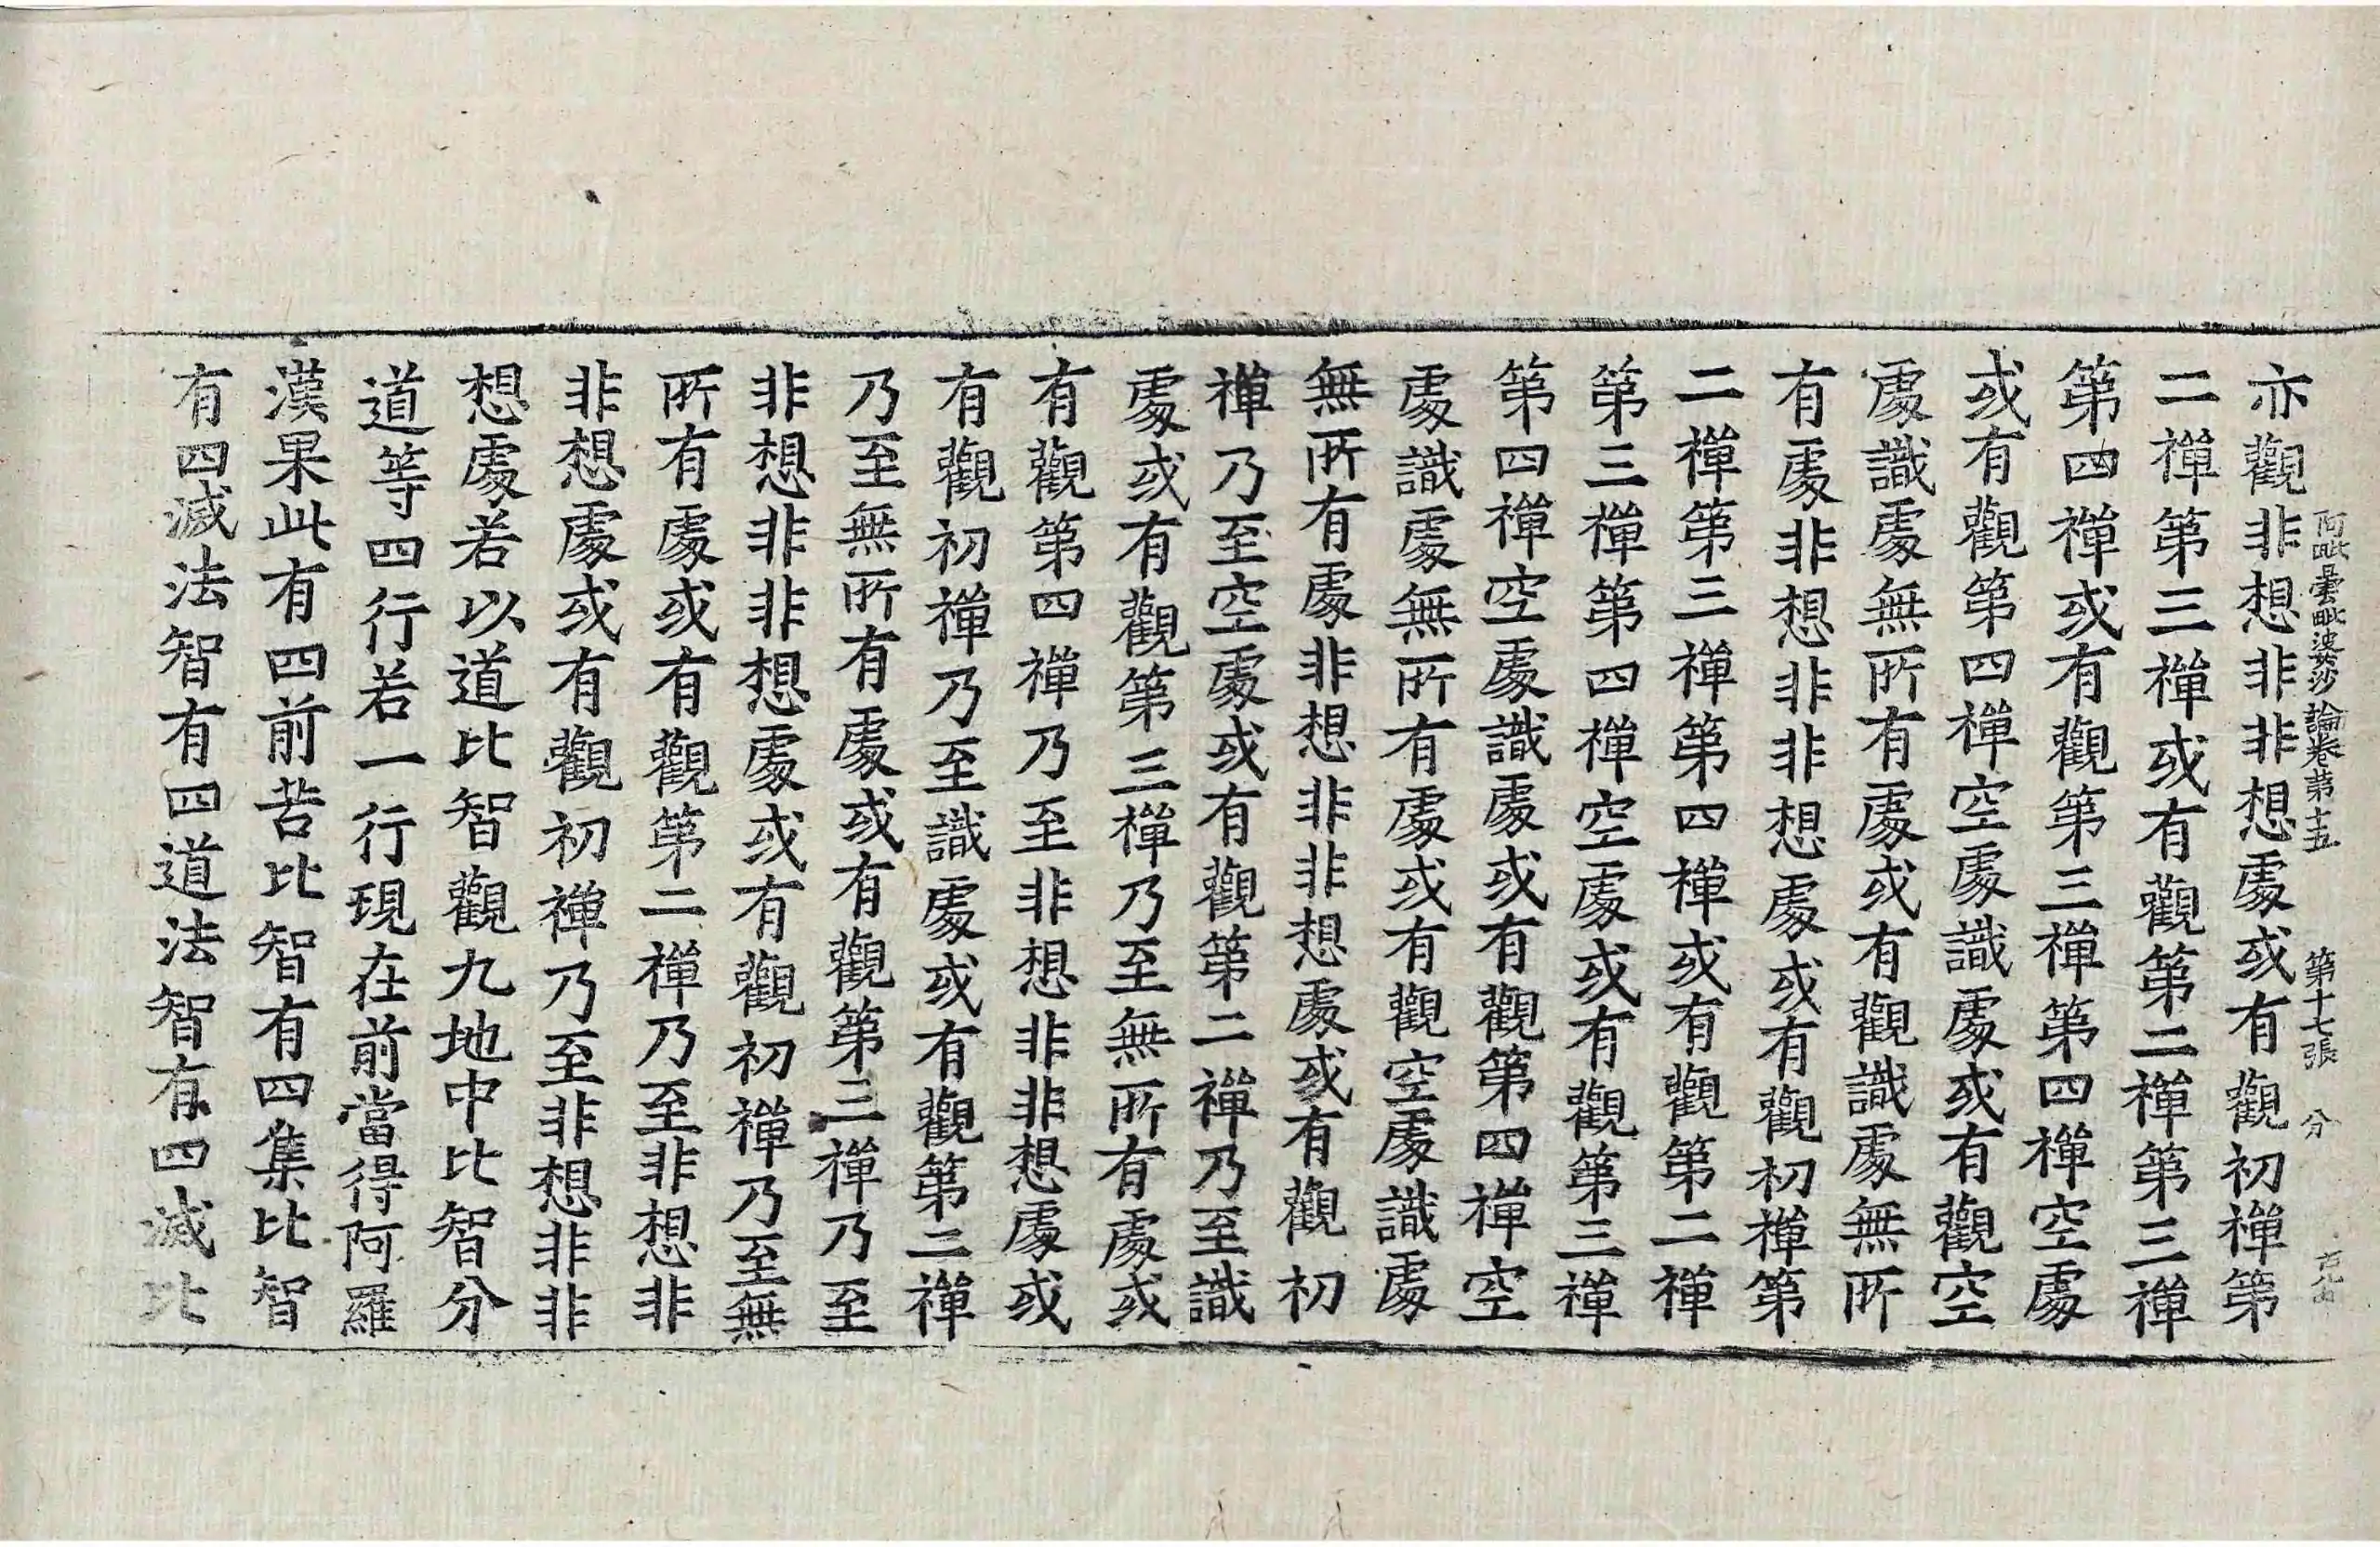 亦觀非想非非想處或有觀初禪第
阿毗曇毗婆沙論卷第十五 第十七張 分
二禪第三禪或有觀第二禪第三禪
第四禪或有觀第三禪第四禪空處
或有觀第四禪空處識處或有觀空
處識處無所有處或有觀識處無所
有處非想非非想處或有觀初禪第
二禪第三禪第四禪或有觀第二禪
第三禪第四禪空處或有觀第三禪
第四禪空處識處或有觀第四禪空
處識處無所有處或有觀空處識處
無所有處非想非非想處或有觀初
禪乃至空處或有觀第二禪乃至識
處或有觀第三禪乃至無所有處或
有觀第四禪乃至非想非非想處或
有觀初禪乃至識處或有觀第二禪
乃至無所有處或有觀第三禪乃至
非想非非想處或有觀初禪乃至無
所有處或有觀第二禪乃至非想非
非想處或有觀初禪乃至非想非非
想處若以道比智觀九地中比智分
道等四行若一行現在前當得阿羅
漢果此有四前苦比智有四集比智
有四滅法智有四道法智有四滅比